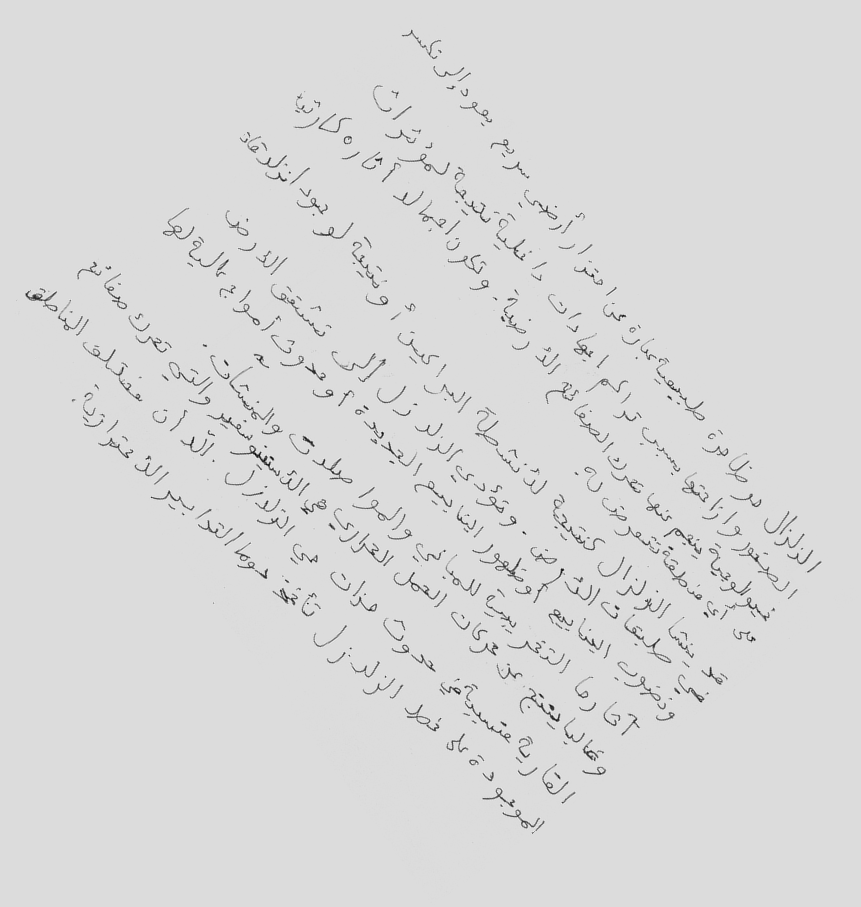 الزلزال هو ظاهرة طبيعية عبارة عن اهتزاز أرضي سريع يعود إلى تكسر
الصخور وازاحتها بسبب تراكم اجهادات داخلية نتيجة لمؤثرات
جيولوجية ينجم عنها تحرك الصفائح الأرضية. وتكون اجمالا أثاره كارثية
على أي منطقة تتعرض له.
قد ينشأ الزلزال كنتيجة لأنشطة البراكين أو نتيجة لوجود انزلاقات
في طبقات الأرض. وتؤدي الزلازل إلى تشقق الأرض
ونضوب الينابيع أو ظهور الينابيع الجديدة أو حدوث أمواج عالية لها
آثارها التخريبية للمباني والمواصلات والمنشآت.
وغالبا ينتج عن حركات الحمل الحراري في الأستينوسفير والتي تحرك صفائح
القارية متسببة في حدوث هزات هي الزلازل. إلا أن مختلف المناطق
الموجودة على خط الزلازل تأخذ دوما التدابير الأحترازية.